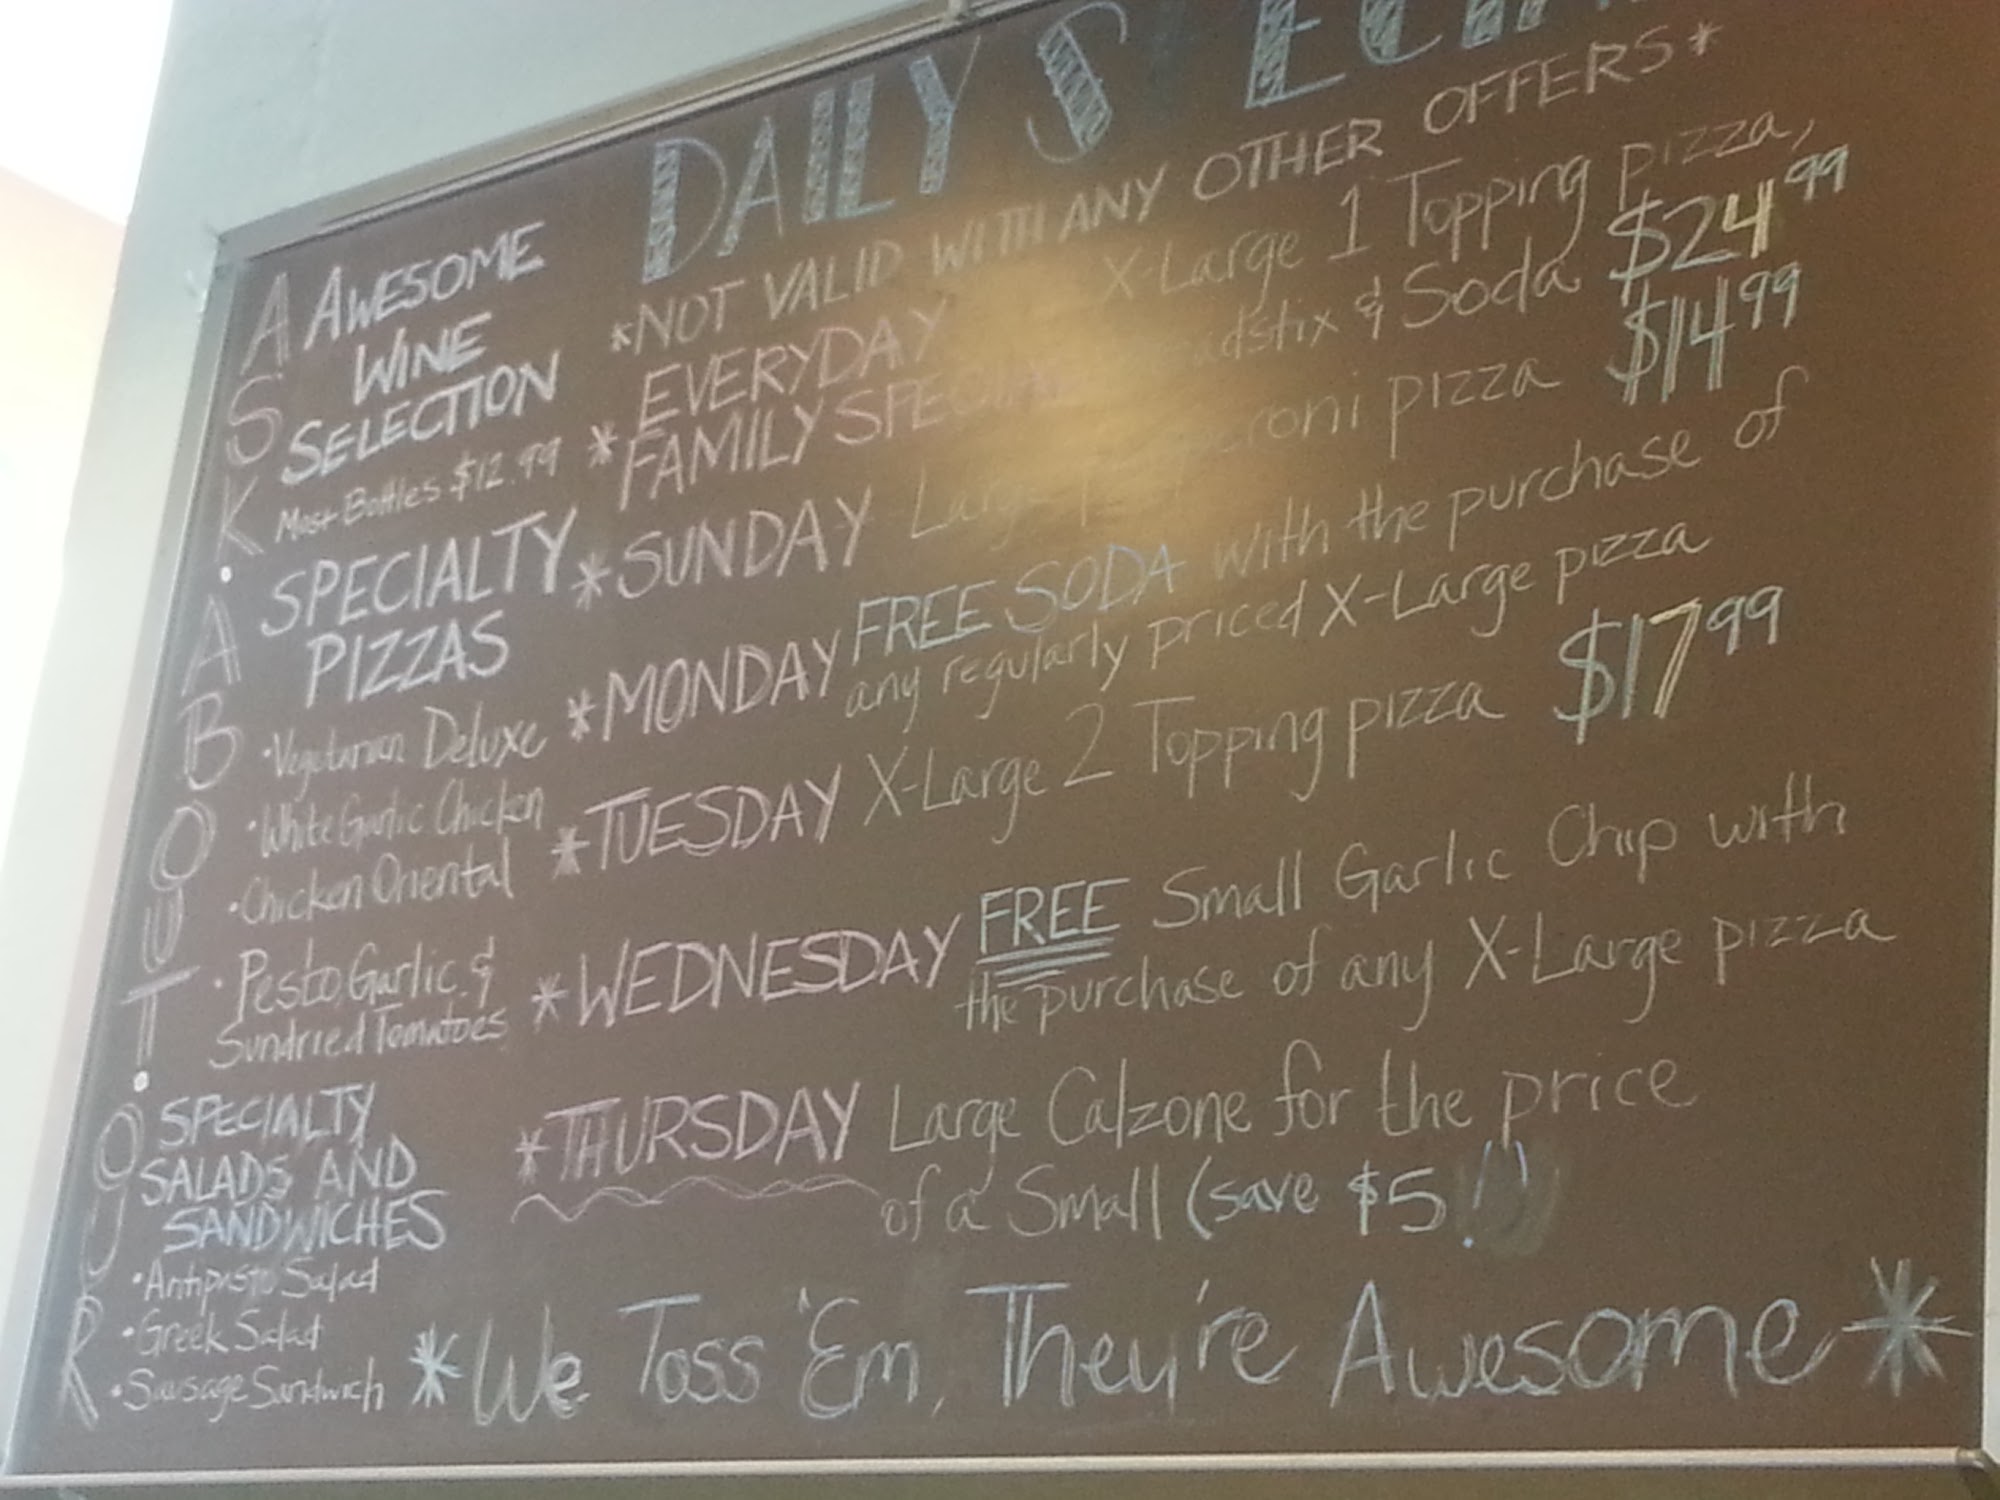 DAILY
*NOT VALID WITH ANY OTHER OFFERS*
* EVERYDAY FAMILY SPECIAL X-Large 1 Topping pizza,
& Soda $24.99
*SUNDAY Large pizza $14.99
*MONDAY FREE SODA with the purchase of
any regularly priced X-Large pizza
*TUESDAY X-Large 2 Topping pizza $17.99
*WEDNESDAY FREE Small Garlic Chip with
the purchase of any X-Large pizza
*THURSDAY Large Calzone for the price
of a Small (save $5!!)
*We Toss 'Em, They're Awesome*
ASK • ABOUT • OUR
AWESOME
WINE
SELECTION
Most Bottles $12.99
SPECIALTY
PIZZAS
•Vegetarian Deluxe
•White Garlic Chicken
•Chicken Oriental
•Pesto, Garlic &
Sundried Tomatoes
SPECIALTY
SALADS AND
SANDWICHES
•Antipasto Salad
•Greek Salad
•Sausage Sandwich